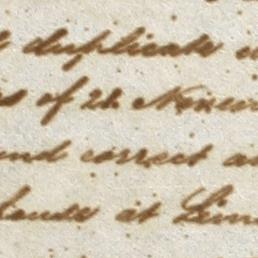 duplicate
of 21 Novem
and correct a
at Lim